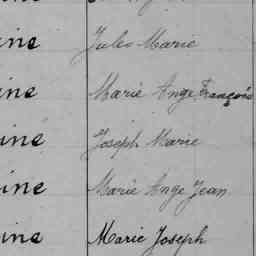 ine Jules Marie
ine Marie Ange François
ine Joseph Marie
ine Marie Ange Jean
ine Marie Joseph